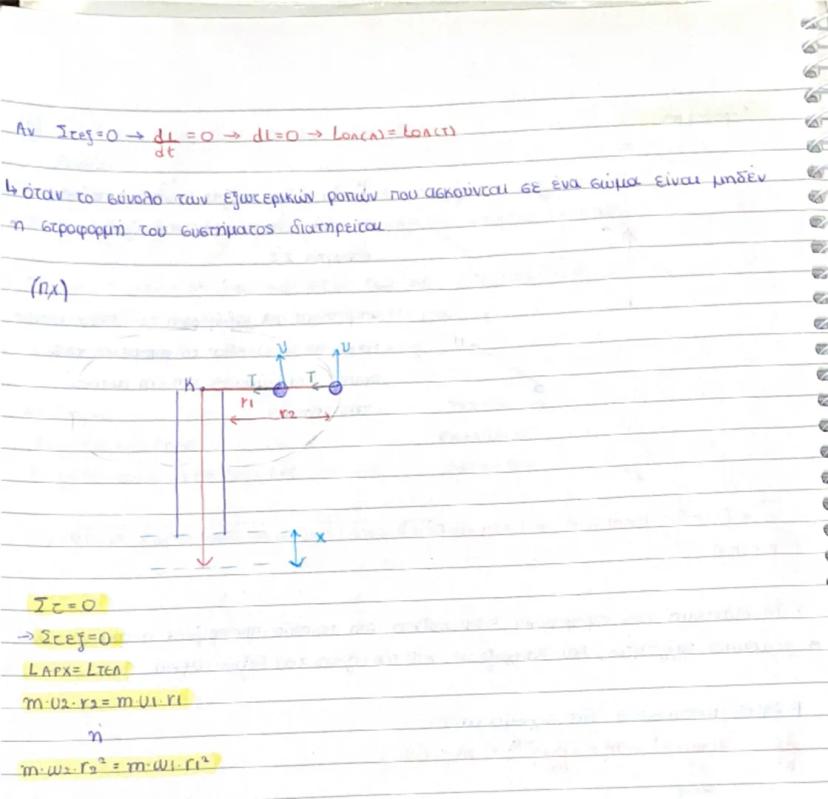 Αν Στεξ=0 → dL/dt = 0 → dL=0 → Lολ(Α) = Lολ(Τ)
↳ όταν το σύνολο των εξωτερικών ροπών που ασκούνται σε ένα σώμα είναι μηδέν
η στροφορμή του συστήματος διατηρείται
(πχ)
υ υ
Κ T T
r1 r2
x
Στ=0
→ Στεξ=0
LΑΡΧ= LΤΕΛ
m·υ2·r2 = m·υ1·r1
ή
m·ω2·r2² = m·ω1·r1²